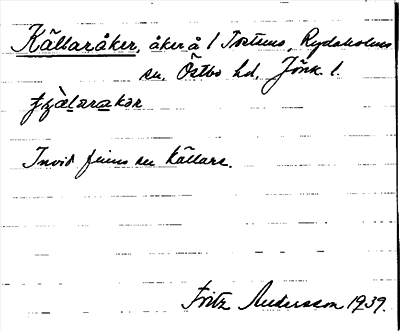 Källaråker, åker å 1 Torstuno, Rydaholms
sn, Östbo hd, Jönk. l.
Invid finns en källare.
Fritz Andersson 1939.